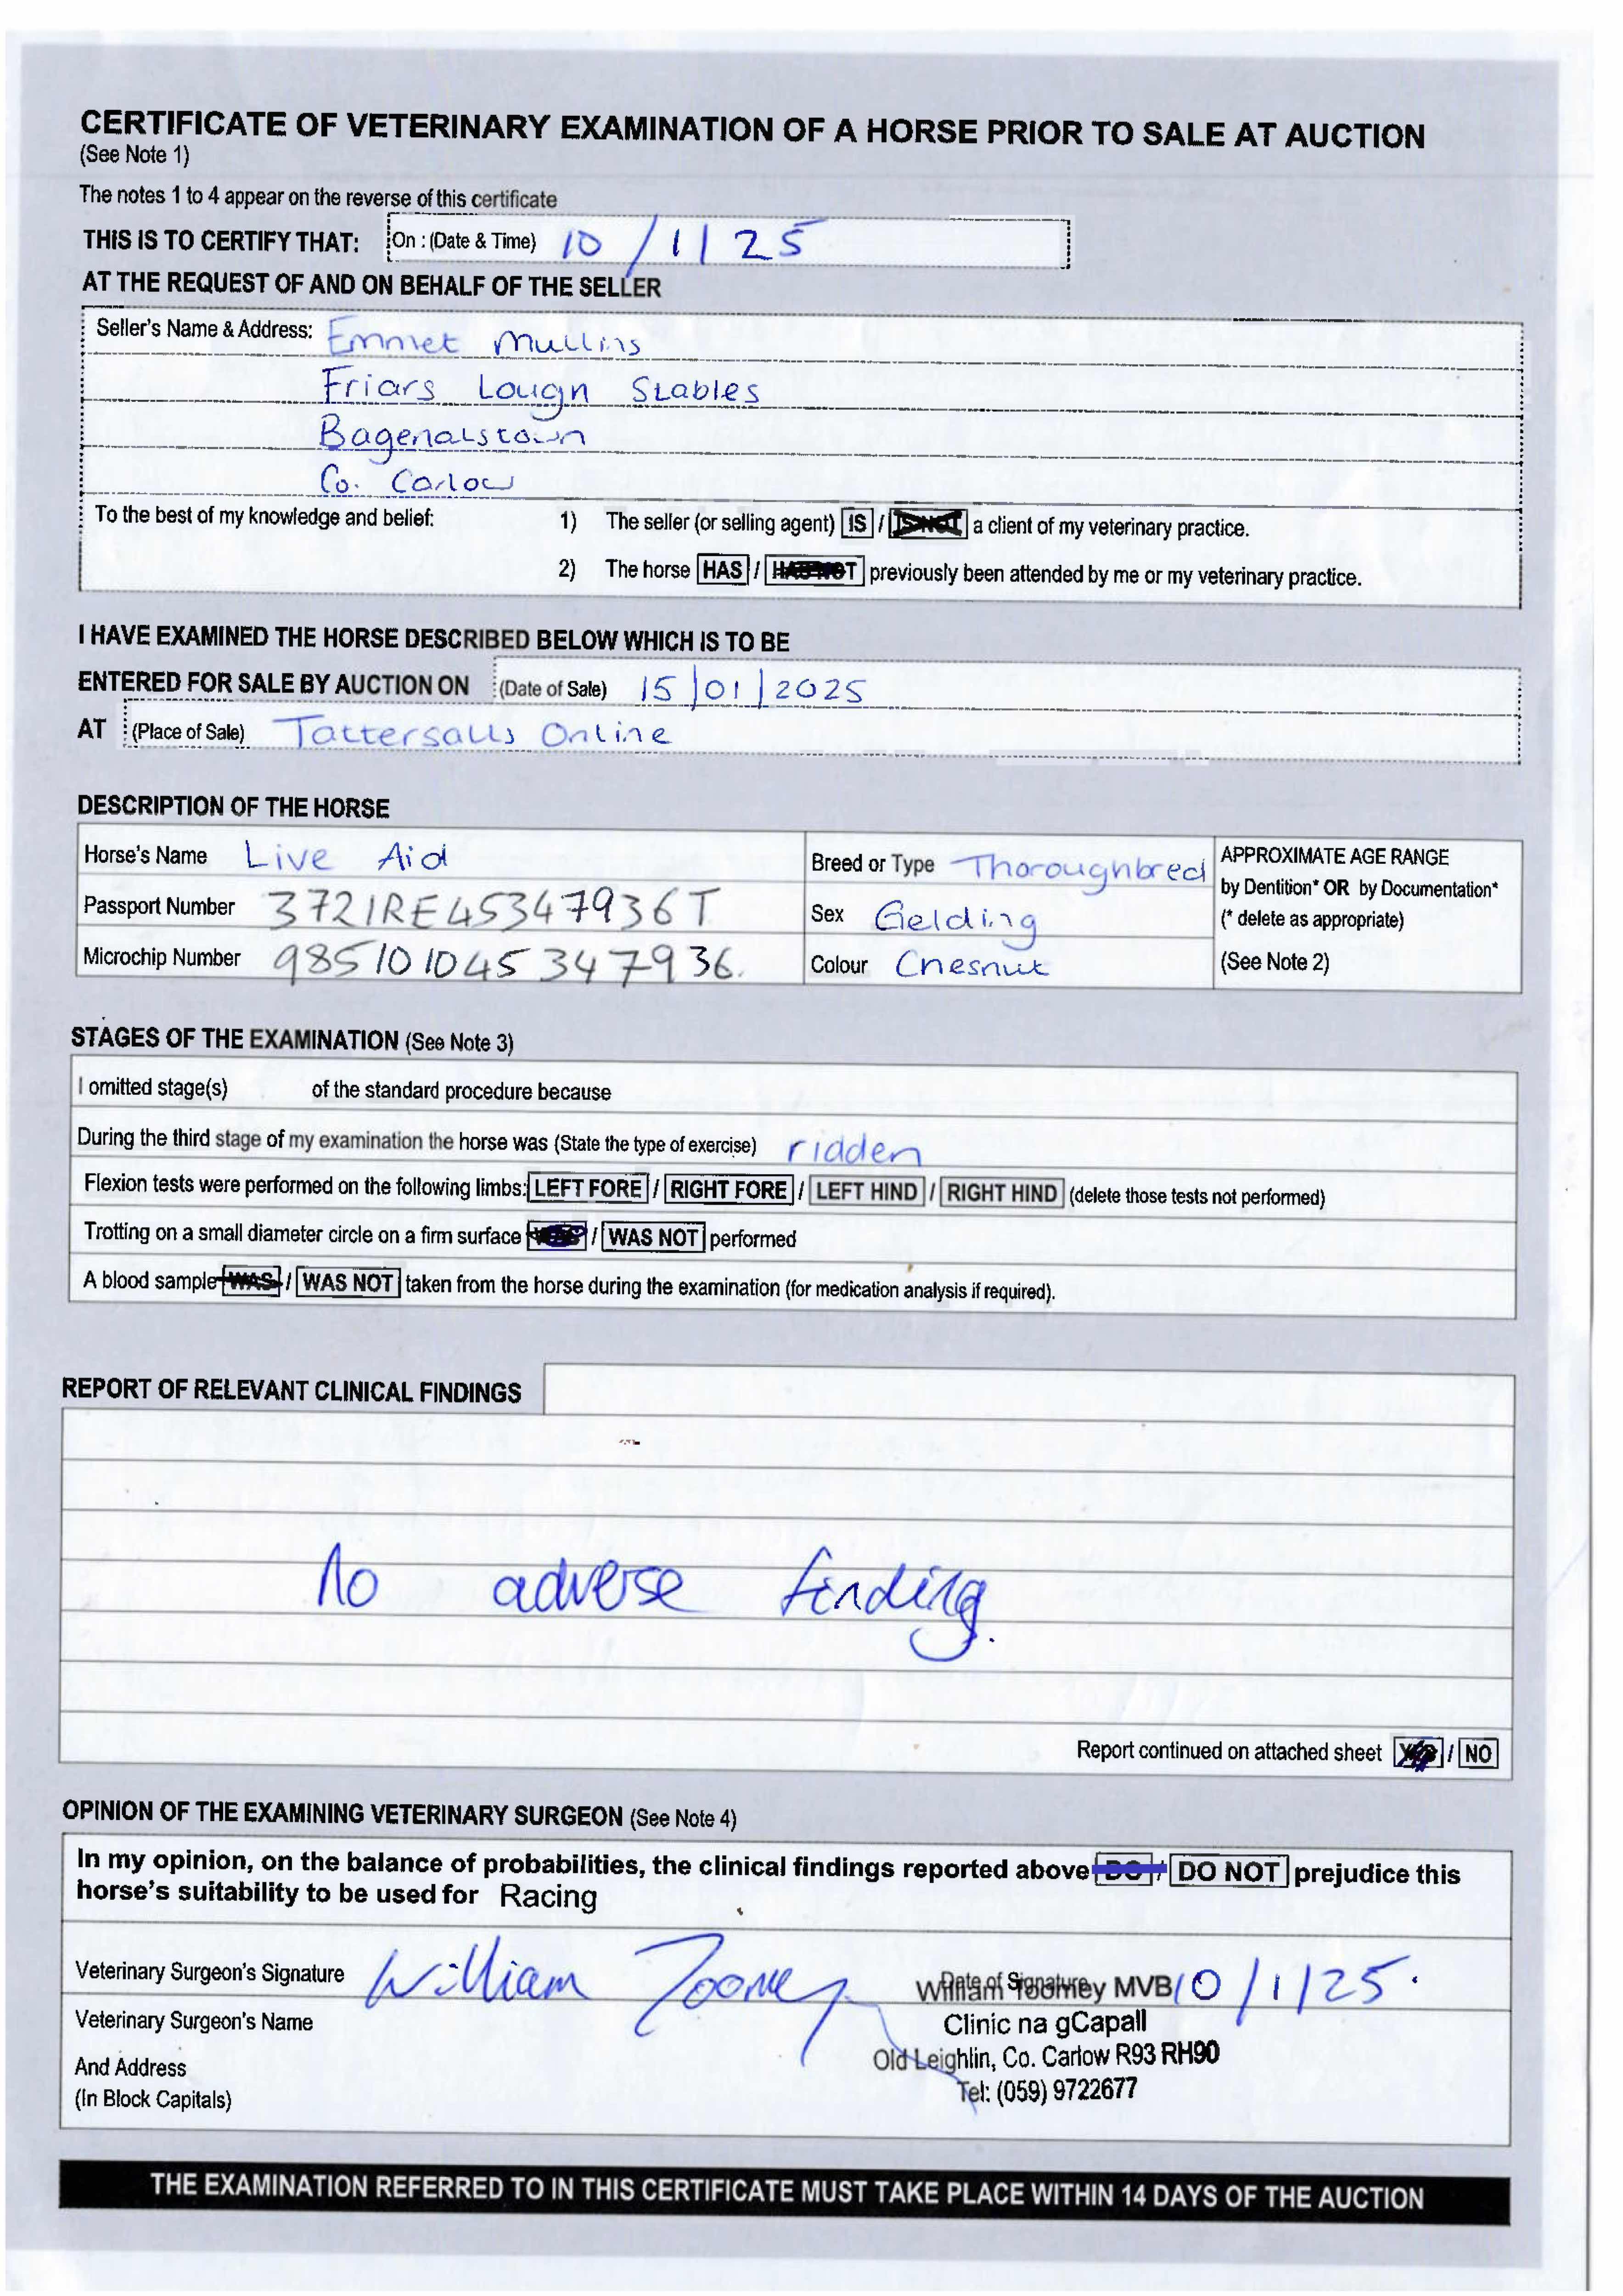 CERTIFICATE OF VETERINARY EXAMINATION OF A HORSE PRIOR TO SALE AT AUCTION
(See Note 1)
The notes 1 to 4 appear on the reverse of this certificate
THIS IS TO CERTIFY THAT: On : (Date & Time) 10/1/25
AT THE REQUEST OF AND ON BEHALF OF THE SELLER
Seller's Name & Address: Emmet Mullins
Friars Lough Stables
Bagenalstown
Co. Carlow
To the best of my knowledge and belief: 1) The seller (or selling agent) IS / IS NOT a client of my veterinary practice.
2) The horse HAS / HAS NOT previously been attended by me or my veterinary practice.
I HAVE EXAMINED THE HORSE DESCRIBED BELOW WHICH IS TO BE
ENTERED FOR SALE BY AUCTION ON (Date of Sale) 15/01/2025
AT (Place of Sale) Tattersalls Online
DESCRIPTION OF THE HORSE
Horse's Name Live Aid Breed or Type Thoroughbred APPROXIMATE AGE RANGE
by Dentition* OR by Documentation*
Passport Number 372IRE45347936T Sex Gelding (* delete as appropriate)
Microchip Number 985101045347936. Colour Chesnut (See Note 2)
STAGES OF THE EXAMINATION (See Note 3)
I omitted stage(s) of the standard procedure because
During the third stage of my examination the horse was (State the type of exercise) ridden
Flexion tests were performed on the following limbs: LEFT FORE / RIGHT FORE / LEFT HIND / RIGHT HIND (delete those tests not performed)
Trotting on a small diameter circle on a firm surface WAS / WAS NOT performed
A blood sample WAS / WAS NOT taken from the horse during the examination (for medication analysis if required).
REPORT OF RELEVANT CLINICAL FINDINGS
No adverse finding.
Report continued on attached sheet YES / NO
OPINION OF THE EXAMINING VETERINARY SURGEON (See Note 4)
In my opinion, on the balance of probabilities, the clinical findings reported above DO / DO NOT prejudice this
horse's suitability to be used for Racing
Veterinary Surgeon's Signature William Toomey Date of Signature 10/1/25.
William Toomey MVB
Veterinary Surgeon's Name Clinic na gCapall
And Address Old Leighlin, Co. Carlow R93 RH90
(In Block Capitals) Tel: (059) 9722677
THE EXAMINATION REFERRED TO IN THIS CERTIFICATE MUST TAKE PLACE WITHIN 14 DAYS OF THE AUCTION